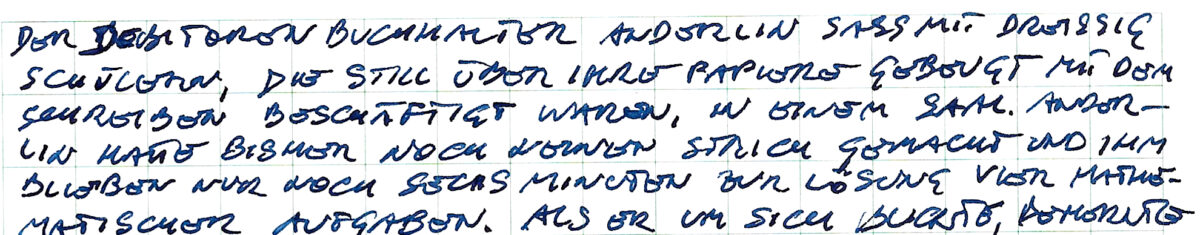 DER DEBITOREN BUCHHALTER ANDERLIN SASS MIT DREISSIG
SCHÜLERN, DIE STILL ÜBER IHRE PAPIERE GEBEUGT MIT DEM
SCHREIBEN BESCHÄFTIGT WAREN, IN EINEM SAAL. ANDER-
LIN HATTE BISHER NOCH KEINEN STRICH GEMACHT UND IHM
BLIEBEN NUR NOCH SECHS MINUTEN ZUR LÖSUNG VIER MATHE-
MATISCHER AUFGABEN. ALS ER UM SICH BLICKTE, BEMERKTE